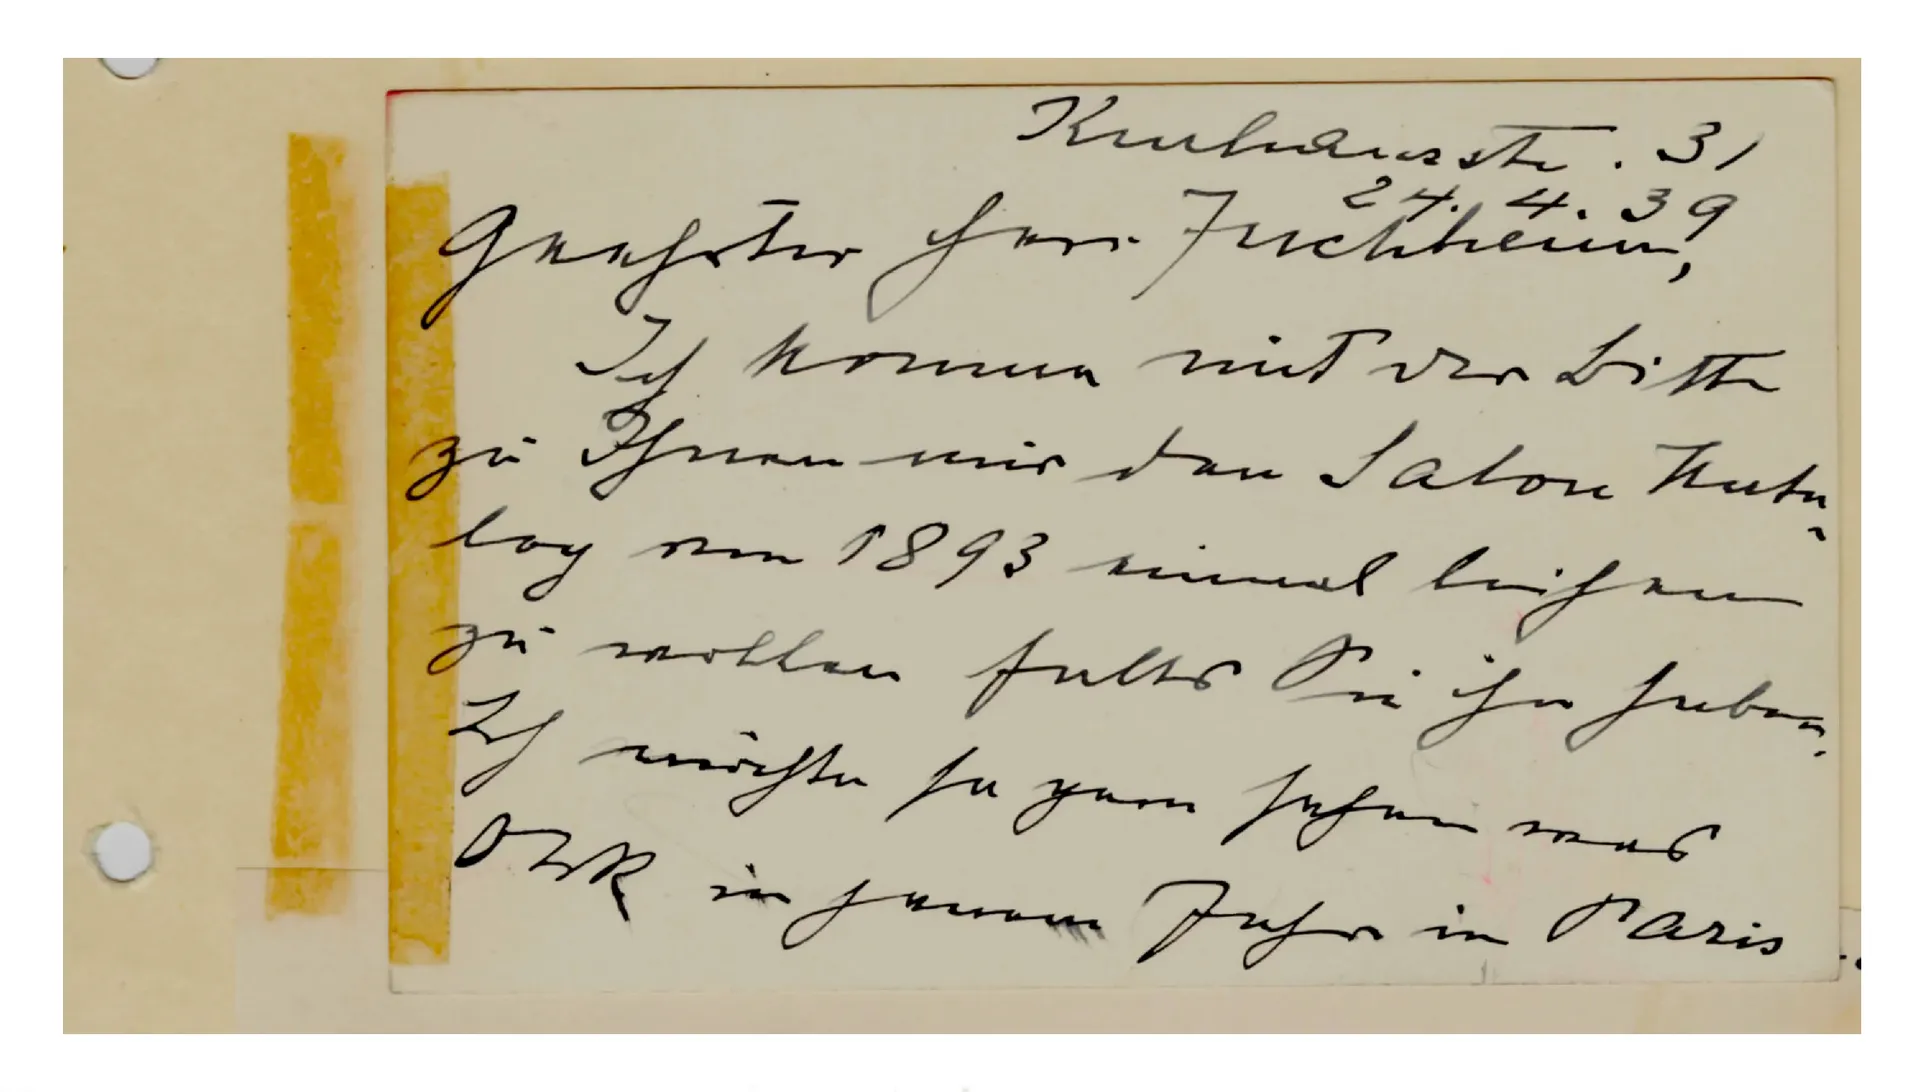 Kurhausstr. 31
24. 4. 39
Geehrter Herr Juchheim,
Ich komme mit der Bitte
zu Ihnen mir den Salon Kata-
log von 1893 einmal leihen
zu wollen falls Sie ihn haben.
Ich möchte so gern sehen was
in jenem Jahr in Paris